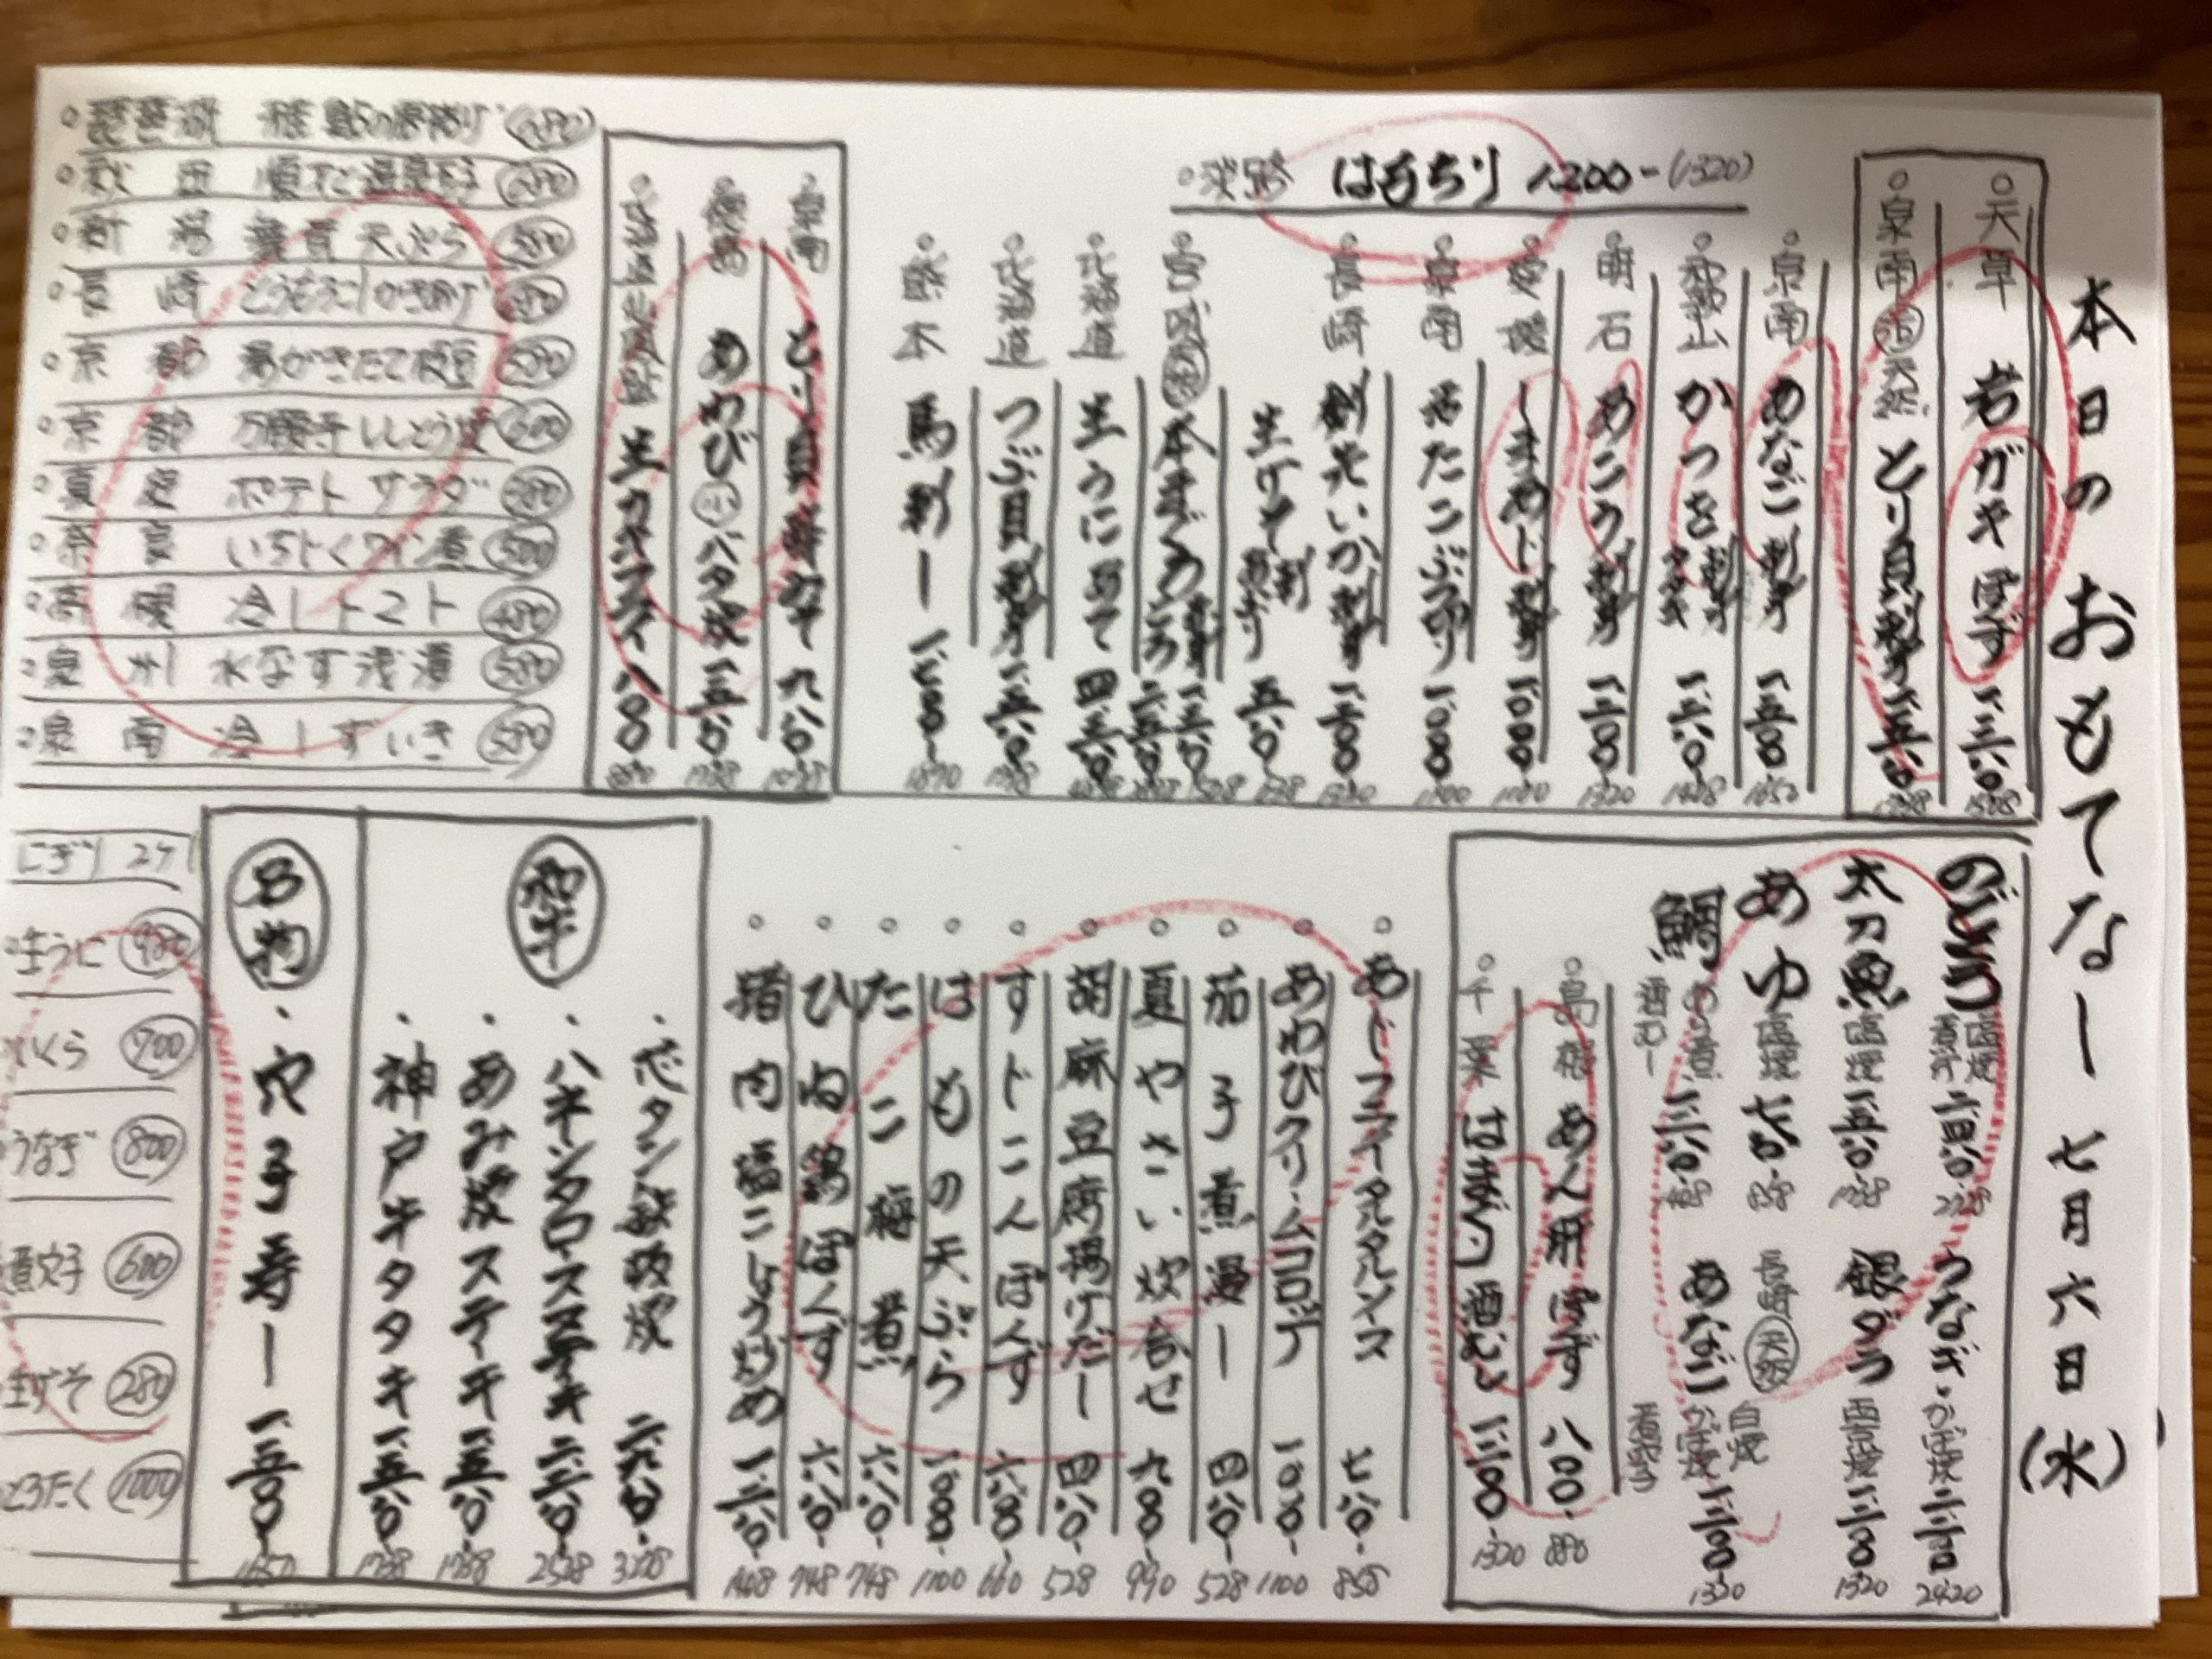 本日のおもてなし 七月六日(水)
天草 岩ガキ ぽず 一、三八〇 1518
泉南 活 天然 とり貝 刺身
淡路 はもちり 1200-(1320)
泉南 あなご 刺身 一、五〇〇 1650
和歌山 かつを 刺身 タタキ 一、二八〇 1408
明石 あこう 刺身 一、二〇〇 1320
愛媛 しまあじ 刺身 一、〇〇〇 1100
泉南 活たこぶつ切り 一、〇〇〇 1100
長崎 剣先いか 刺身 一、二〇〇 1320
生げそ 刺
宮城 本まぐろ 刺身 とろ
北海道 生うに
北海道 つぶ貝 刺身
熊本 馬刺し
泉南 とり貝 酢みそ 九八〇
徳島 あわび バタ焼 一、五八〇 1738
生カキフライ 八〇〇
琵琶湖 稚鮎の唐揚げ
秋田 順才と温泉玉子
新潟 舞茸天ぷら 580
長崎 とうもろこしかき揚げ
京都 湯がきたて枝豆 580
京都 万願寺ししとう焼 600
夏定 ポテトサラダ
奈良 いちじくワイン煮 500
高槻 冷しトマト 480
泉州 水なす浅漬 580
泉南 冷しずいき 580
のどぐろ 塩焼 煮汁 二、四八〇 2728
太刀魚 塩焼 一、五八〇 1738
あゆ 塩焼 七八〇 858
鯛 あら煮 酒むし 一、二八〇 1408
うなぎ かば焼 二、二〇〇 2420
銀ダラ 西京焼 一、二〇〇 1320
長崎 天然 あなご 白焼 かば焼 一、二〇〇 1320
島根 あん肝 ぽず 八〇〇 880
千葉 はまぐり 酒むし 一、二〇〇 1320
あじフライタルタルソース 七八〇 858
あわびクリームコロッケ 一、〇〇〇 1100
茄子煮浸し 四八〇 528
夏やさい炊合せ 九〇〇 990
胡麻豆腐揚げだし 四八〇 528
すじこんぽんず 六〇〇 660
はもの天ぷら 一、〇〇〇 1100
たこ 梅煮 六八〇 748
ひね鶏ぽんず 六八〇 748
猪肉塩こしょう炒め 一、二八〇 1408
和牛
芯タン鉄板焼 二、九八〇 3278
ハネシタロースステーキ
あみ焼ステーキ 一、五八〇 1738
神戸牛タタキ 一、五八〇 1738
名物
穴子寿し 一、五〇〇 1650
にぎり 2ケ
生うに 980
いくら 700
うなぎ 800
煮穴子 600
生げそ 280
とろたく 1000